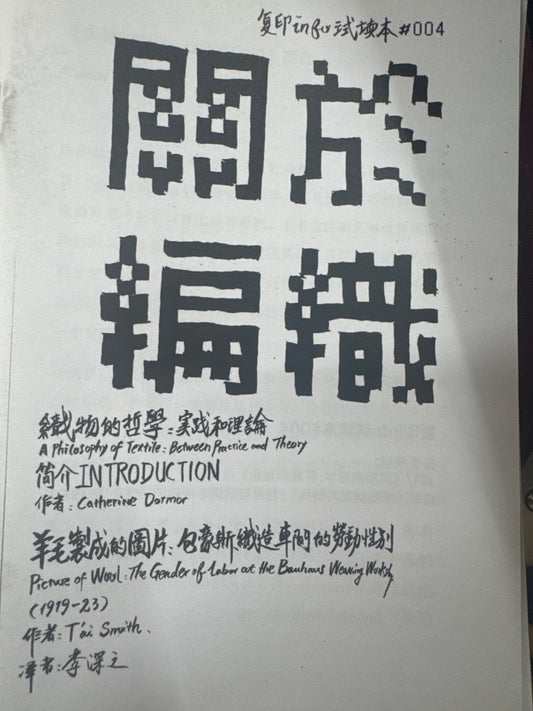 复印infu试读本#004
關於
編織
織物的哲學：实践和理論
A Philosophy of Textile: Between Practice and Theory
简介INTRODUCTION
作者：Catherine Dormor
羊毛製成的圖片：包豪斯織造車間的勞動性别
Picture of Wool: The Gender of Labor at the Bauhaus Weaving Worksh
(1919-23)
作者：T'ai Smith.
译者：李深之